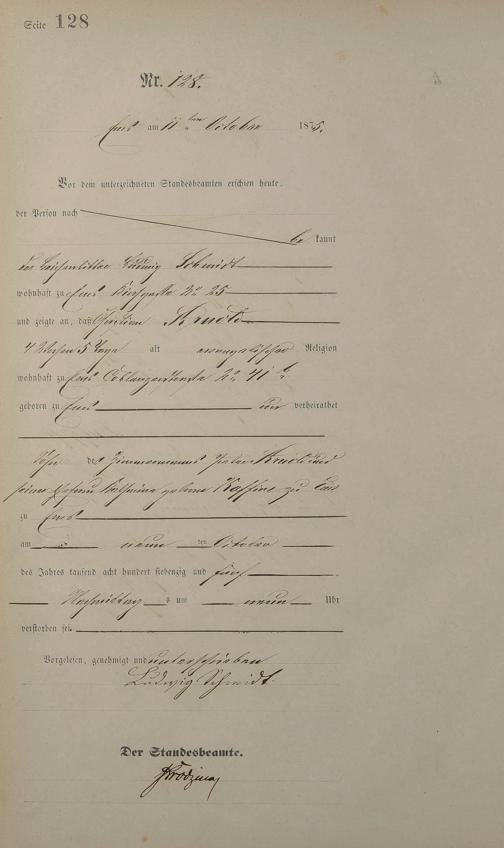 Seite 128
Nr. 128.
Ems am 11 ten October 1875.
Vor dem unterzeichneten Standesbeamten erschien heute,
der Person nach
be kannt
der Leichenbitter Ludwig Schmidt
wohnhaft zu Ems Kirchgasse No 25
und zeigte an, daß Christian Arnold
4 Wochen 5 Tage alt evangelischer Religion
wohnhaft zu Ems Coblenzerstraße No 41
geboren zu Ems un verheirathet
Sohn des Zimmermanns Peter Arnold und
seiner Ehefrau geborene zu Ems
zu Ems
am neun ten October
des Jahres tausend acht hundert siebenzig und fünf
Nachmittag s um neun Uhr
verstorben sei.
Vorgelesen, genehmigt und unterschrieben
Ludwig Schmidt.
Der Standesbeamte.